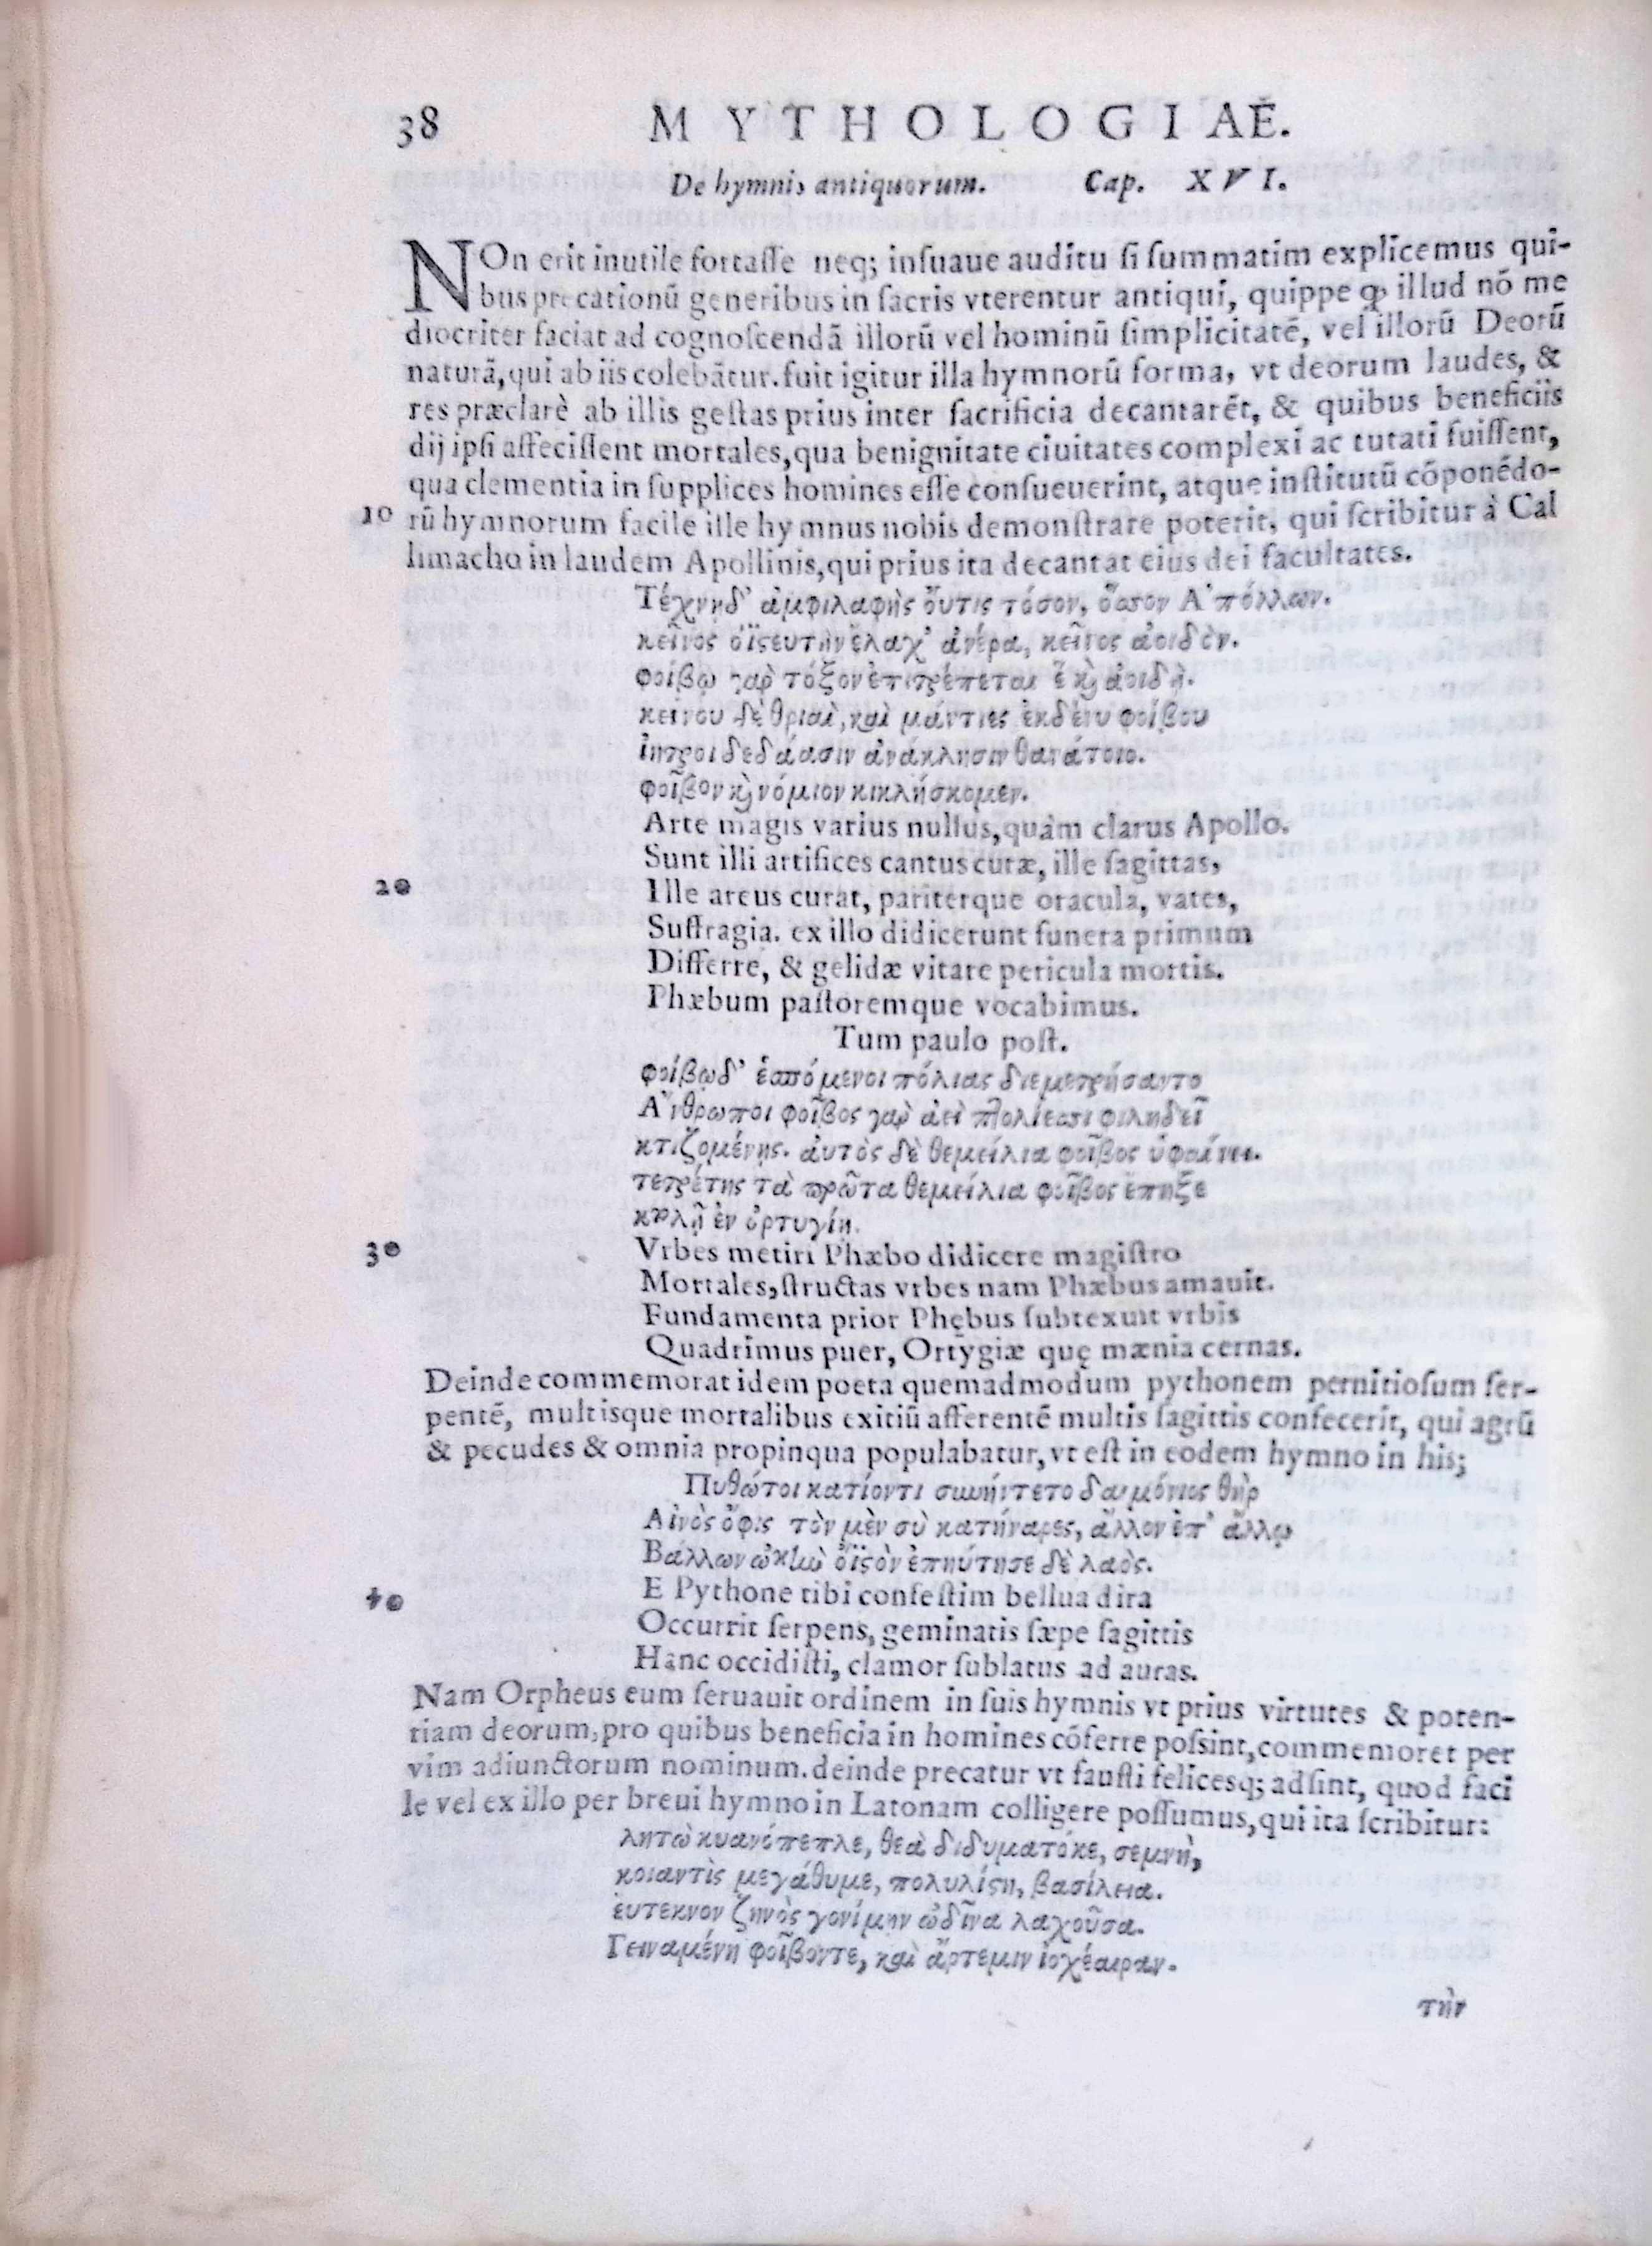 38 MYTHOLOGIAE.
De hymnis antiquorum. Cap. XVI.
NOn erit inutile fortasse neq; insuaue auditu si summatim explicemus qui-
bus precationū generibus in sacris vterentur antiqui, quippe ꝙ illud nō me
diocriter faciat ad cognoscendā illorū vel hominū simplicitatē, vel illorū Deorū
naturā, qui ab iis colebātur. fuit igitur illa hymnorū forma, vt deorum laudes, &
res præclarè ab illis gestas prius inter sacrificia decantarēt, & quibus beneficiis
dij ipsi affecissent mortales, qua benignitate ciuitates complexi ac tutati fuissent,
qua clementia in supplices homines esse consueuerint, atque institutū cōponēdo-
10 rū hymnorum facile ille hymnus nobis demonstrare poterit, qui scribitur à Cal
limacho in laudem Apollinis, qui prius ita decantat eius dei facultates.
Τέχνηδ' ἀμφιλαφὴς ὄυτις τόσον, ὅσσον Α'πόλλων.
κεῖνος ὀϊστευτὴν ἔλαχ' ἀνέρα, κεῖνος ἀοιδὸν.
φοίβῳ γαρ τόξον ἐπιτρέπεται ἒ καὶ ἀοιδὴ.
κείνου δὲ θριαὶ, καὶ μάντιες ἐκδένυ φοίβου
ἰητροι δεδάασιν ἀνάκλησιν θανάτοιο.
φοῖβον καὶ νόμιον κικλήσκομεν.
Arte magis varius nullus, quàm clarus Apollo.
Sunt illi artifices cantus curæ, ille sagittas,
20 Ille arcus curat, pariterque oracula, vates,
Suffragia. ex illo didicerunt funera primum
Differre, & gelidæ vitare pericula mortis.
Phæbum pastoremque vocabimus.
Tum paulo post.
φοίβῳδ' ἑσπόμενοι πόλιας διεμετρήσαντο
Α'´νθρωποι φοῖβος γαρ ἀεὶ πτολίεσσι φιληδεῖ
κτιζομένης. ἀυτὸς δὲ θεμείλια φοῖβος ὑφαίνει.
τετρέτης τὰ πρῶτα θεμείλια φοῖβος ἔπηξε
καλῇ ἐν ὀρτυγίη.
30 Vrbes metiri Phæbo didicere magistro
Mortales, structas vrbes nam Phæbus amauit.
Fundamenta prior Phębus subtexuit vrbis
Quadrimus puer, Ortygiæ quę mænia cernas.
Deinde commemorat idem poeta quemadmodum pythonem pernitiosum ser-
pentē, multisque mortalibus exitiū afferentē multis sagittis confecerit, qui agrū
& pecudes & omnia propinqua populabatur, vt est in eodem hymno in his;
Πυθώτοι κατίοντι συνήντετο δαιμόνιος θὴρ
Αἰνὸς ὄφις τὸν μὲν σὺ κατήναρες, ἄλλον ἐπ' ἄλλῳ
Βαλλων ὠκὺν ὀϊστὸν ἐπηύτησε δὲ λαὸς.
40 E Pythone tibi confestim bellua dira
Occurrit serpens, geminatis sæpe sagittis
Hanc occidisti, clamor sublatus ad auras.
Nam Orpheus eum seruauit ordinem in suis hymnis vt prius virtutes & poten-
tiam deorum, pro quibus beneficia in homines cōferre possint, commemoret per
vim adiunctorum nominum. deinde precatur vt fausti felicesq; adsint, quod faci
le vel ex illo per breui hymno in Latonam colligere possumus, qui ita scribitur:
λητὼ κυανόπεπλε, θεὰ διδυματόκε, σεμνὴ,
κοιαντὶς μεγάθυμε, πολυλίστη, βασίλεια.
ἐυτεκνον ζηνὸς γονίμην ὠδῖνα λαχοῦσα.
Γειναμένη φοῖβόντε, καὶ ἄρτεμιν ἰοχέαιραν.
τὴν